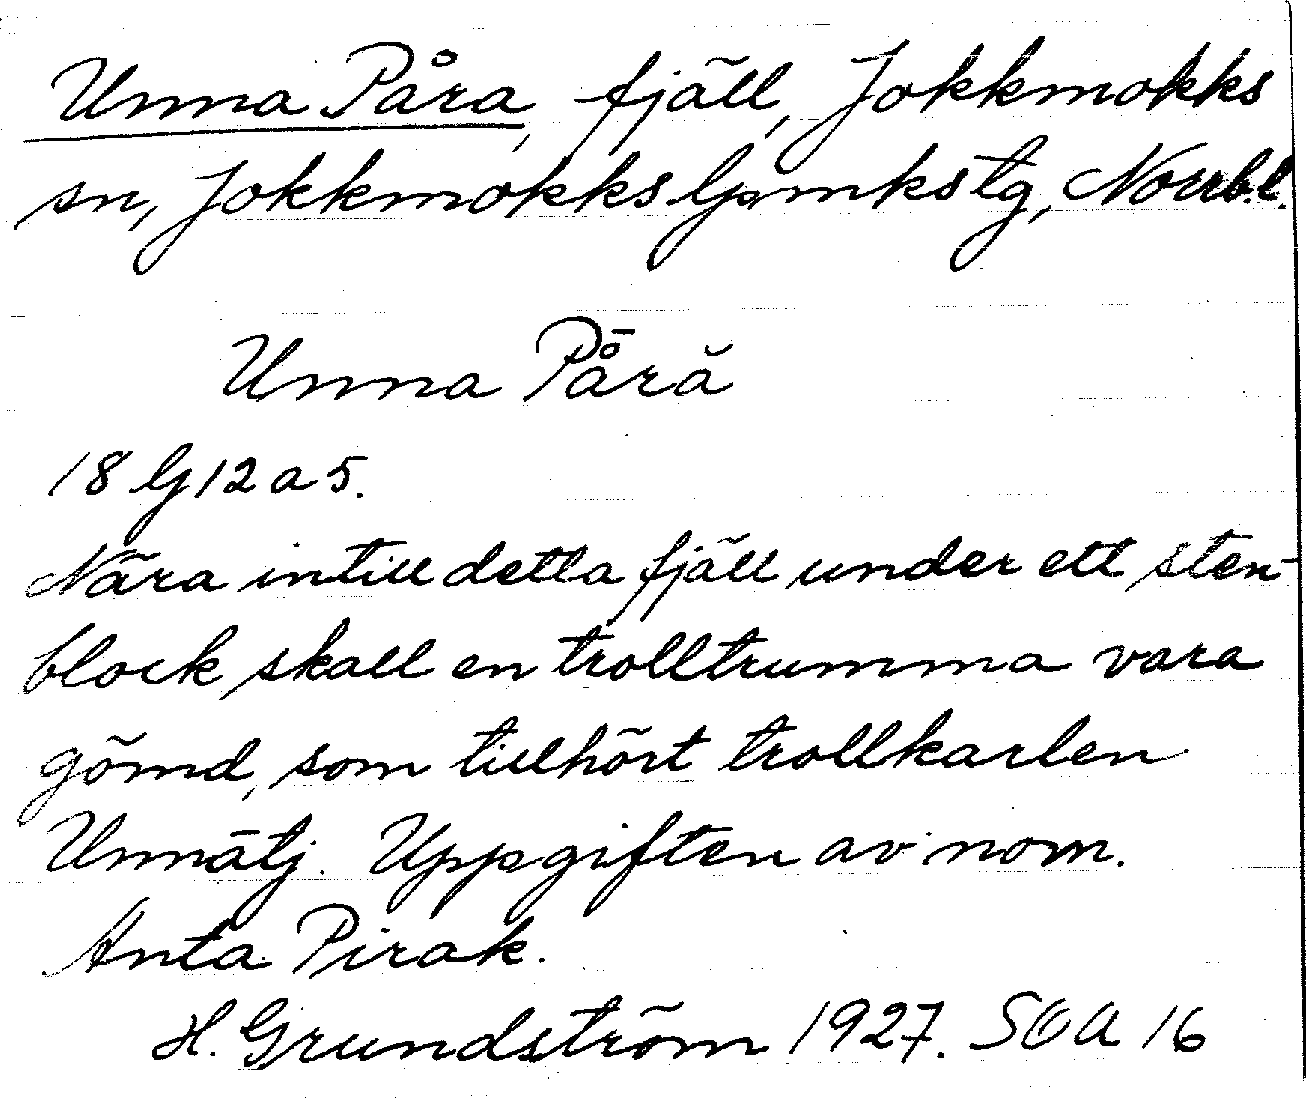 Unna Påra, fjäll, Jokkmokks
sn, Jokkmokks lpmkstg, Norrb.l.
Unna Pā̊ră
18 G 12 a 5.
Nära intill detta fjäll under ett sten-
block skall en trolltrumma vara
gömd, som tillhört trollkarlen
Unnātj. Uppgiften av nom.
Anta Pirak.
H. Grundström 1927. SOA 16